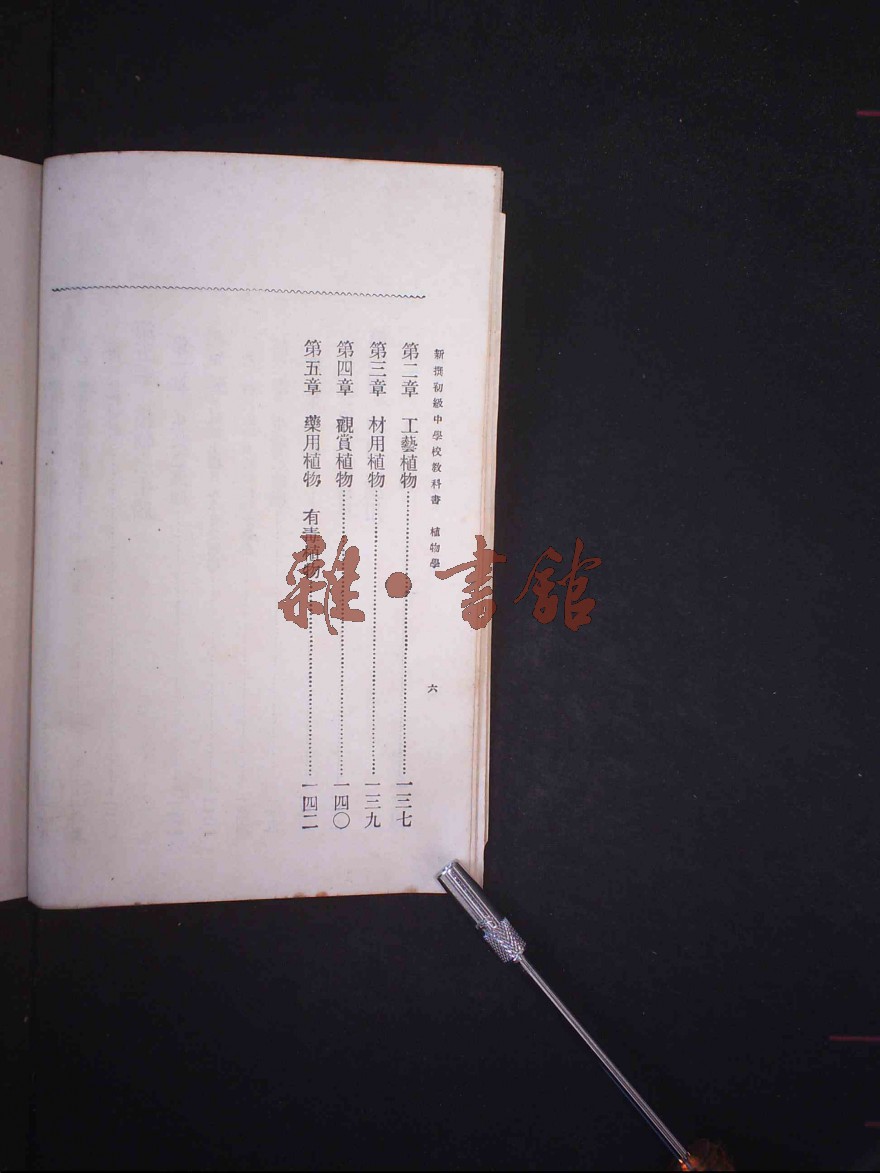 新撰初級中學校教科書 植物學 六
第二章 工藝植物……一三七
第三章 材用植物……一三九
第四章 觀賞植物……一四〇
第五章 藥用植物 有毒植物……一四二
雜·書館